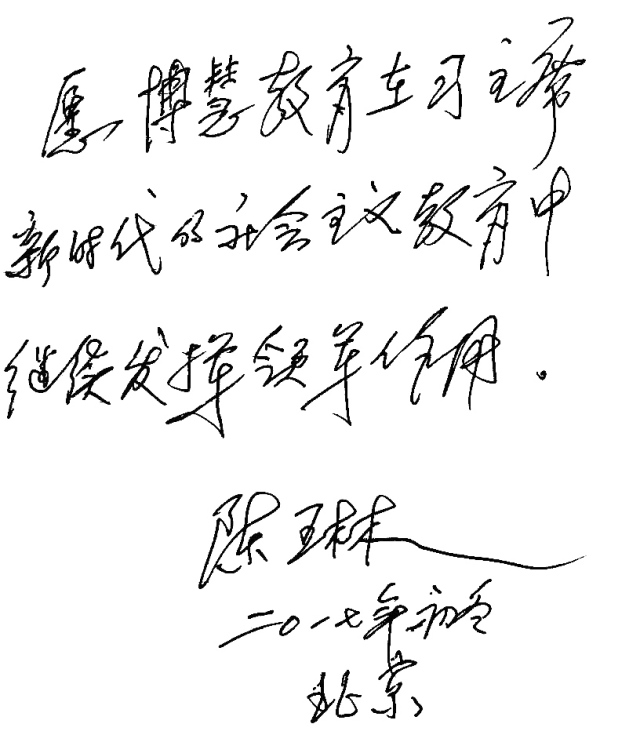 愿博慧教育在习主席
新时代的社会主义教育中
继续发挥领军作用。
陈琳
二〇一七年初冬
北京